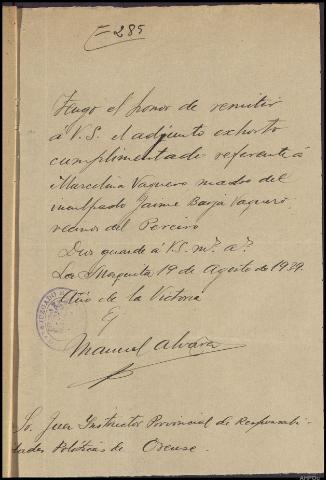 F-285
Tengo el honor de remitir
á V.S. el adjunto exhorto
cumplimentado referente á
Marcelina Vaquero madre del
inculpado Jaime Barja Vaquero,
vecinos del Pereiro
Dios guarde á V.S. m.s a.s
La Mezquita 19 de Agosto de 1939.
Año de la Victoria
Ej
Manuel Alvarez
JUZGADO
Sr. Juez Instructor Provincial de Responsabi-
lidades Politicas de Orense.
AHPOu